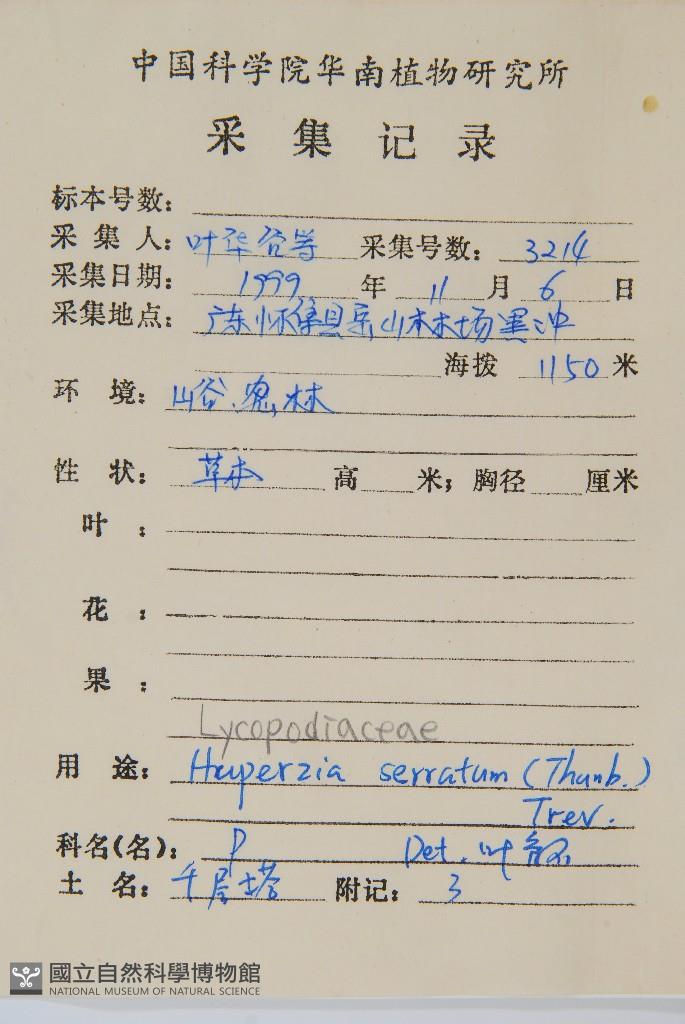 中国科学院华南植物研究所
采集记录
标本号数:
采集人: 叶华谷等 采集号数: 3214
采集日期: 1999 年 11 月 6 日
采集地点: 广东怀集县 山林场黑冲
海拨 1150 米
环境: 山谷.密林
性状: 草本 高 米; 胸径 厘米
叶:
花:
果:
Lycopodiaceae
用途: Huperzia serratum (Thunb.)
Trev.
科名(名): P Det. 叶
土名: 千层塔 附记: 3
國立自然科學博物館
NATIONAL MUSEUM OF NATURAL SCIENCE